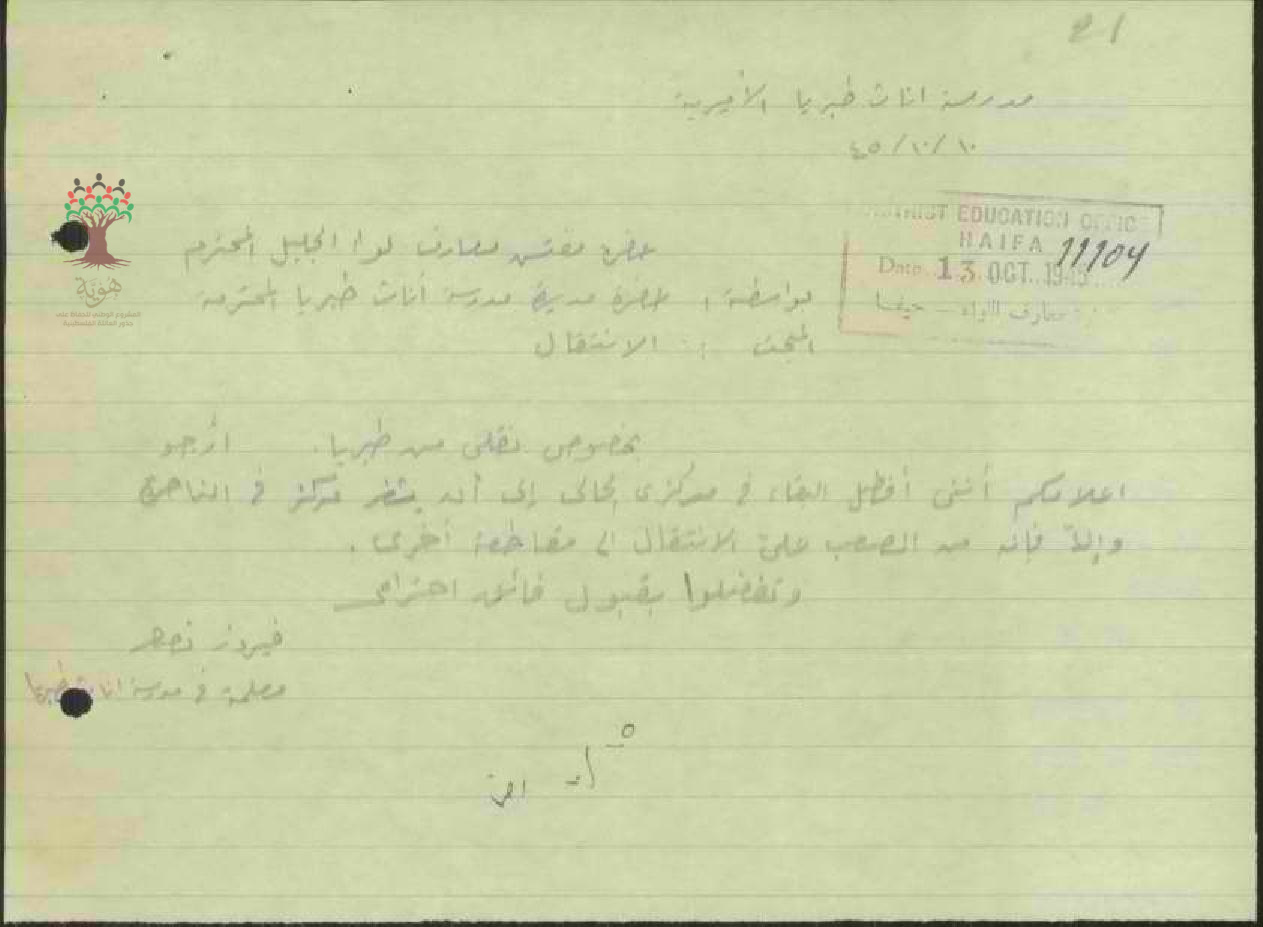 21
مدرسة اناث طبريا الأميرية
١٠/١٠/٤٥
DISTRICT EDUCATION OFFIC
HAIFA 11104
Date 13 OCT. 1945
معارف اللواء — حيفا
حضرة مفتش معارف لواء الجليل المحترم
بواسطة : حضرة مديرة مدرسة أناث طبريا المحترمة
المبحث : الانتقال
بخصوص نقلي من طبريا. أرجو
اعلامكم أنني أفضل البقاء في مركزي الحالي إلى أن يشغر مركز في الناصرة
وإلا فإنه من الصعب عليّ الانتقال الى مقاطعة أخرى .
وتفضلوا بقبول فائق احترامي
فيروز نصر
معلمة في مدرسة اناث طبريا
هوية
المشروع الوطني للحفاظ على
جذور العائلة الفلسطينية